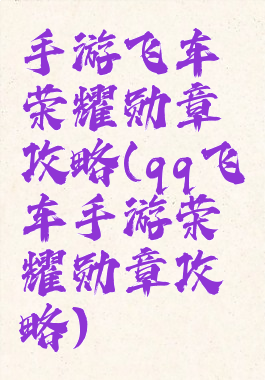 手游飞车
荣耀勋章
攻略(qq飞
车手游荣
耀勋章攻
略)